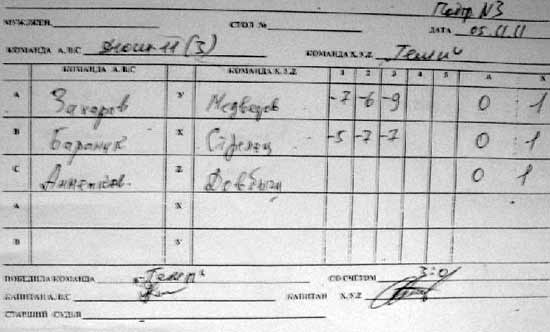 Подгр N3
МУЖ./ЖЕН. СТОЛ № ДАТА 05.11.11
КОМАНДА А.В.С 11 (3) КОМАНДА X.Y.Z.
КОМАНДА А.В.С КОМАНДА X.Y.Z. 1 2 3 4 5 A X
A Захаров Y Медведев -7 -6 -9 0 : 1
B Баранчук X Стрелец -5 -7 -7 0 : 1
C Z Довбыш 0 1
A X
B Y
ПОБЕДИЛА КОМАНДА СО СЧЁТОМ 3:0
КАПИТАН А.В.С КАПИТАН X.Y.Z
СТАРШИЙ СУДЬЯ